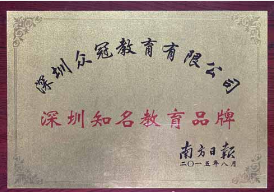 深圳众冠教育有限公司
深圳知名教育品牌
南方日报
二〇一五年八月